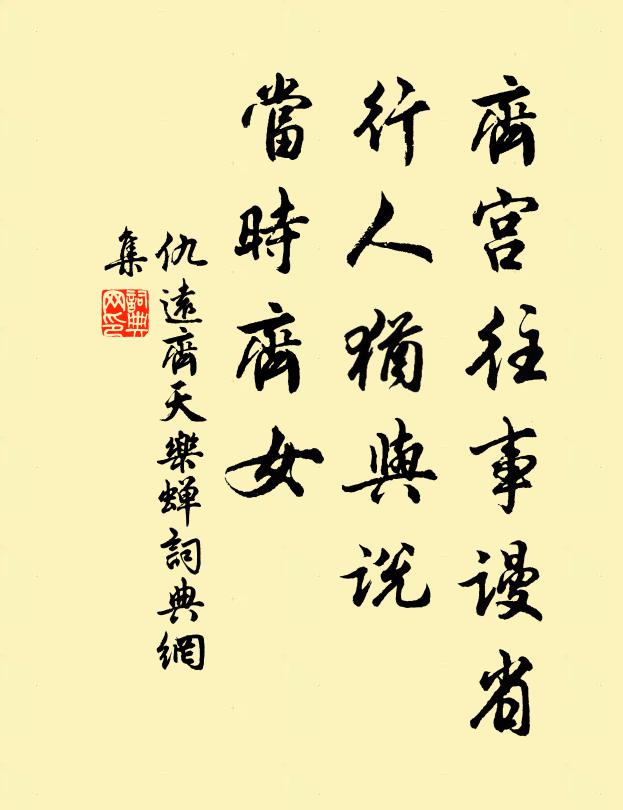 齊宫往事謾省
行人猶與說
當時齊女
仇遠齊天樂蝉詞典網
集
詞典
网印